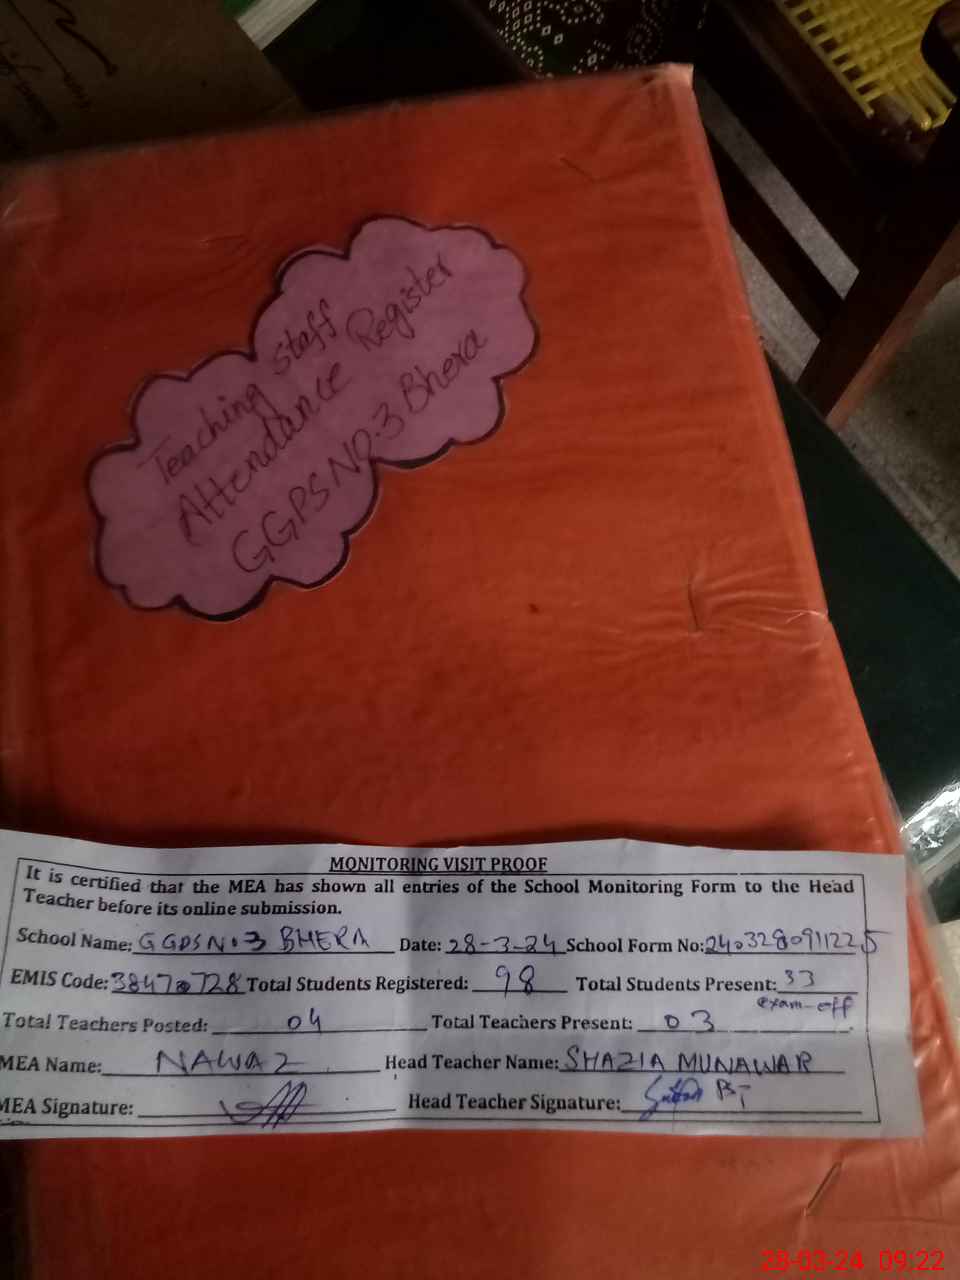 Teaching staff
Attendance Register
GGPS NO.3 Bhera
MONITORING VISIT PROOF
It is certified that the MEA has shown all entries of the School Monitoring Form to the Head
Teacher before its online submission.
School Name: GGPS NO.3 BHERA Date: 28-3-24 School Form No: 240328091122 5
EMIS Code: 38470728 Total Students Registered: 98 Total Students Present: 33
exam-off
Total Teachers Posted: 04 Total Teachers Present: 03
MEA Name: NAWAZ Head Teacher Name: SHAZIA MUNAWAR
MEA Signature: Head Teacher Signature:
28-03-24 09:22